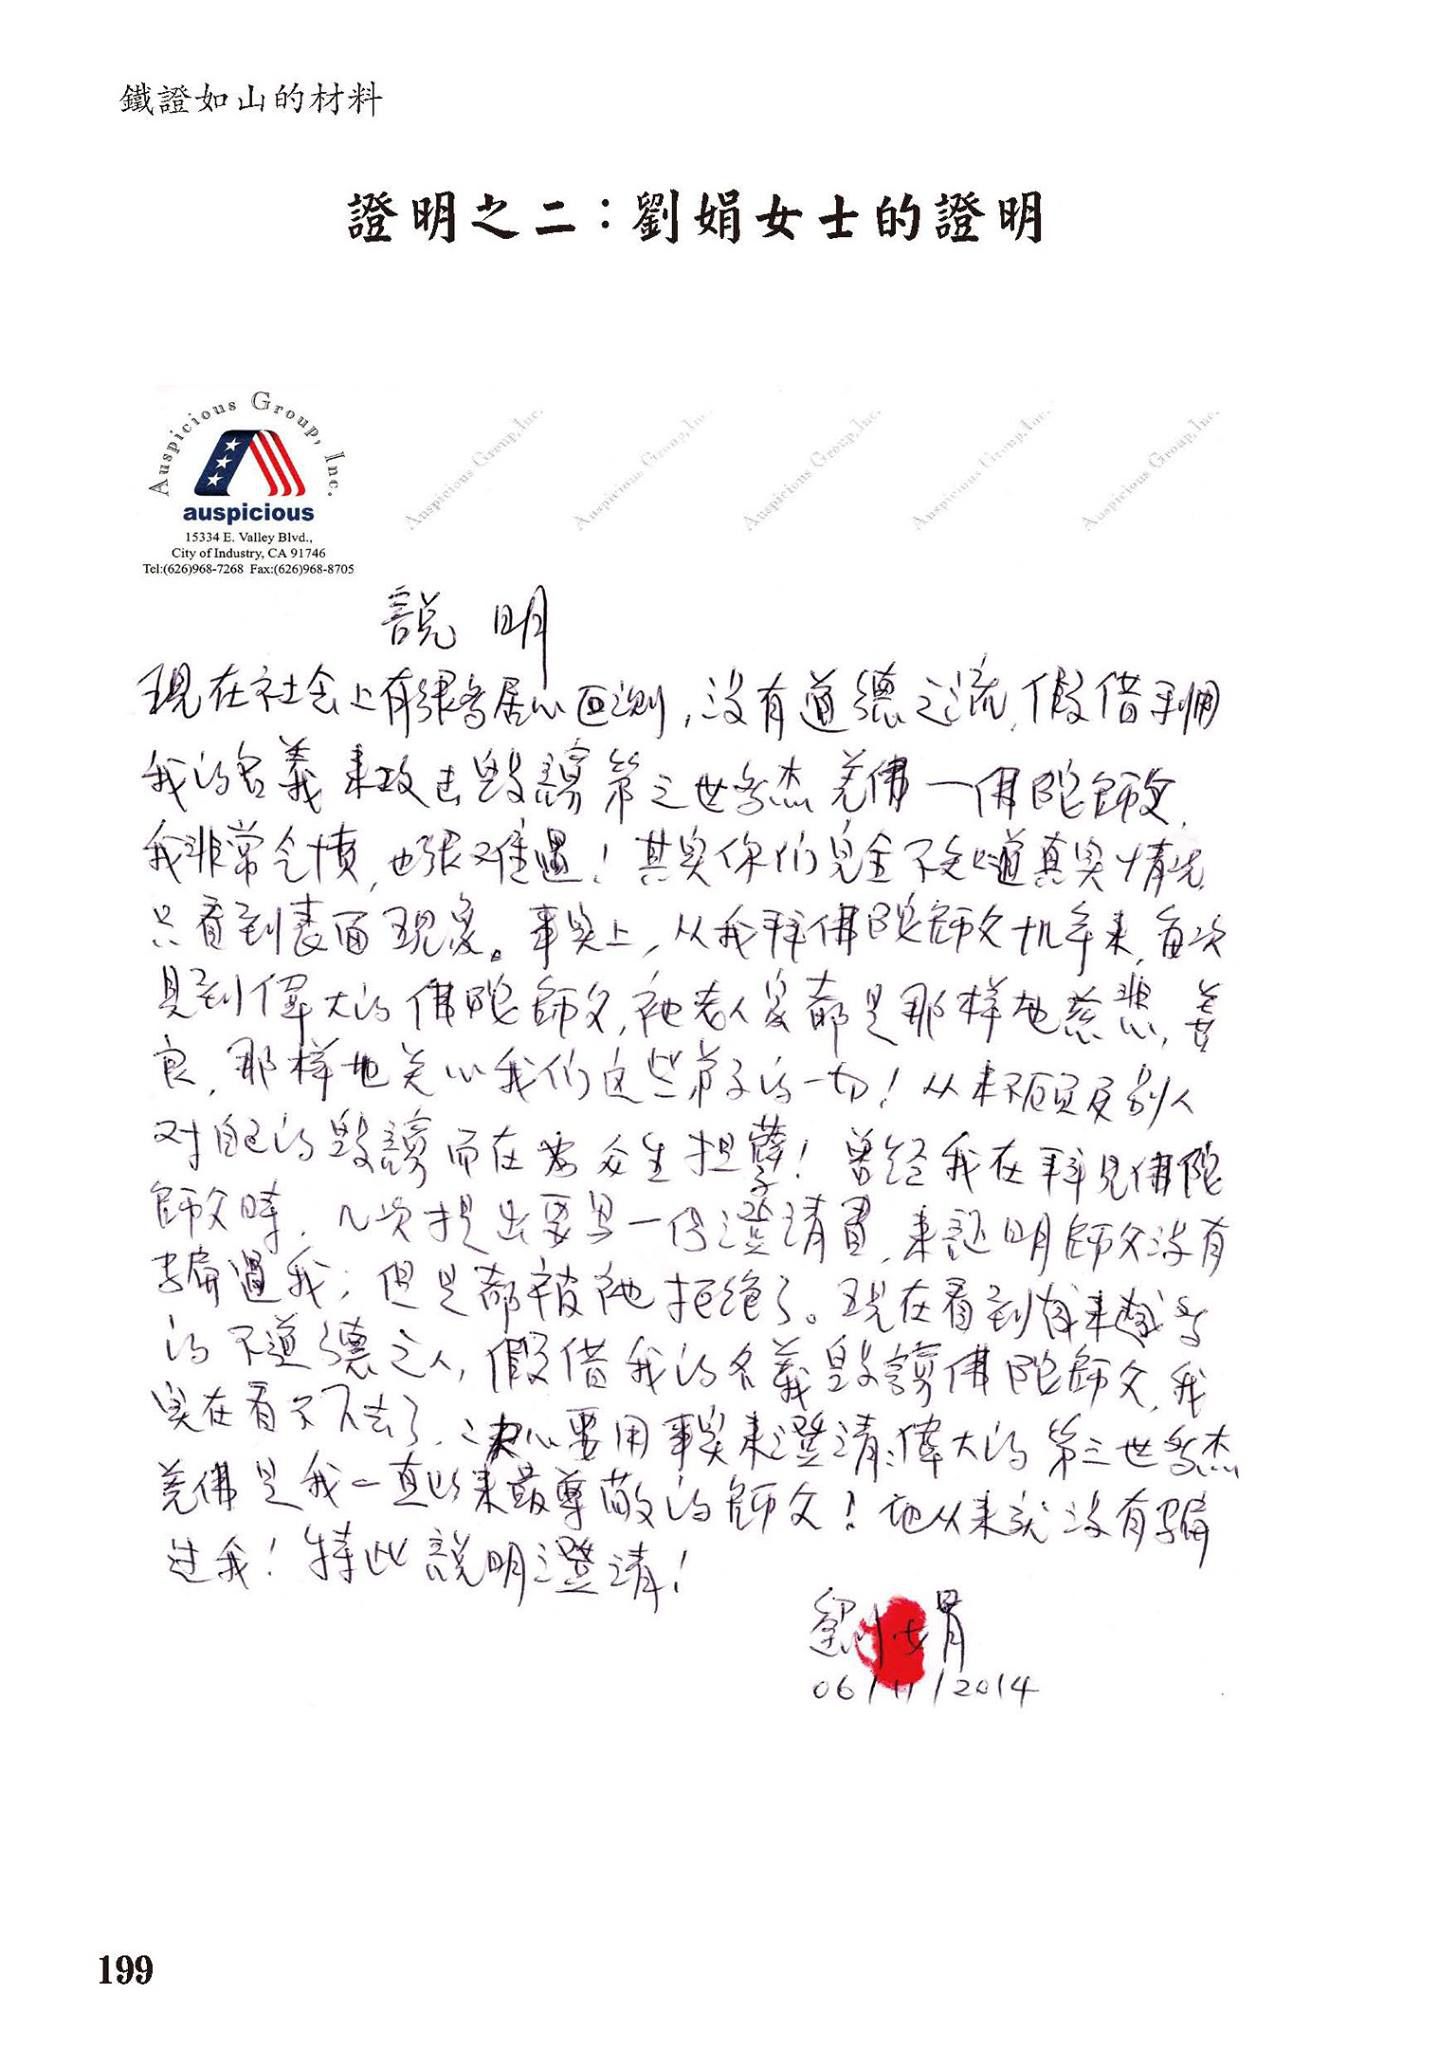 鐵證如山的材料
證明之二：劉娟女士的證明
Auspicious Group, Inc.
Auspicious Group, Inc. Auspicious Group, Inc. Auspicious Group, Inc. Auspicious Group, Inc. Auspicious Group, Inc.
auspicious
15334 E. Valley Blvd.,
City of Industry, CA 91746
Tel:(626)968-7268 Fax:(626)968-8705
說明
現在社会上有很多居心叵测，没有道德之流，假借利用
我的名義来攻击毁謗第三世多杰羌佛一佛陀師父，
我非常气愤，也很难過！其实你们完全不知道真实情况，
只看到表面現象。事实上，从我拜佛陀師父十几年来，每次
見到偉大的佛陀師父，祂老人家都是那样地慈悲，善
良，那样地关心我们这些弟子的一切！从来不顾及别人
对自己的毁謗而在为众生担孽！曾经我在拜見佛陀
師父時，几次提出要写一份澄清書，来証明師父没有
骗過我；但是都被祂拒绝了。現在看到有来越多
的不道德之人，假借我的名義毁謗佛陀師父，我
实在看不下去了，决心要用事实来澄清：偉大的第三世多杰
羌佛是我一直以来最尊敬的師父！祂从来就没有骗
过我！特此說明澄清！
劉娟
06/11/2014
199